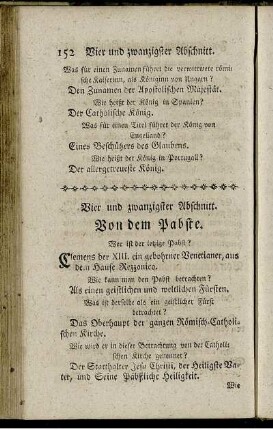 152 Vier und zwanzigster Abschnitt.
Was für einen Zunamen führet die verwittwete römi-
sche Kaiserinn, als Königinn von Ungarn?
Den Zunamen der Apostolischen Majestät.
Wie heißt der König in Spanien?
Der Catholische König.
Was für einen Titel führet der König von
Engelland?
Eines Beschützers des Glaubens.
Wie heißt der König in Portugall?
Der allergetreueste König.
Vier und zwanzigster Abschnitt.
Von dem Pabste.
Wer ist der letzige Pabst?
Clemens der XIII. ein gebohrner Venetianer, aus
dem Hause Rezzonico.
Wie kann man den Pabst betrachten?
Als einen geistlichen und weltlichen Fürsten.
Was ist derselbe als ein geistlicher Fürst
betrachtet?
Das Oberhaupt der ganzen Römisch-Catholi-
schen Kirche.
Wie wird er in dieser Betrachtung von der Catholi-
schen Kirche genennet?
Der Statthalter Jesu Christi, der Heiligste Va-
ter, und Seine Päbstliche Heiligkeit.
Wie